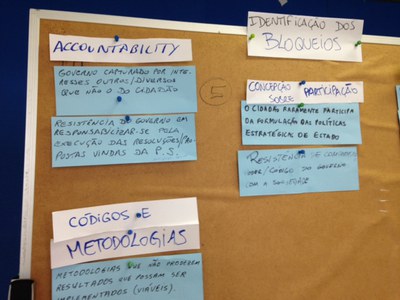 ACCOUNTABILITY
GOVERNO CAPTURADO POR INTE-
RESSES OUTROS/DIVERSOS
QUE NÃO O DO CIDADÃO
RESISTÊNCIA DO GOVERNO EM
RESPONSABILIZAR-SE PELA
EXECUÇÃO DAS RESOLUÇÕES/
POSTAS VINDAS DA P.S.
CÓDIGOS E
METODOLOGIAS
METODOLOGIAS QUE NÃO PRODUZEM
RESULTADOS QUE POSSAM SER
IMPLEMENTADOS (VIÁVEIS).
IDENTIFICAÇÃO DOS
BLOQUEIOS
CONCEPÇÃO
SOBRE PARTICIPAÇÃO
O CIDADÃO RARAMENTE PARTICIPA
DA FORMULAÇÃO DAS POLÍTICAS
ESTRATÉGICAS DE ESTADO
RESISTÊNCIA DE
DO GOVERNO
COM A SOCIEDADE